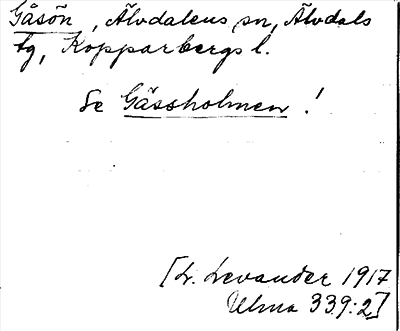 Gåsön, Älvdalens sn, Älvdals
tg, Kopparbergs l.
Se Gåssholmen!
[L. Levander 1917
Ulma 339:2]